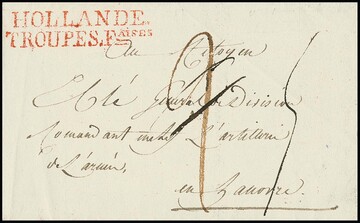 HOLLANDE.
TROUPES.Fᴬᴵˢᴱˢ
Au Citoyen
Eblé Général de Division
Comandant en chef L'artillerie
de L'armée
en hanovre.